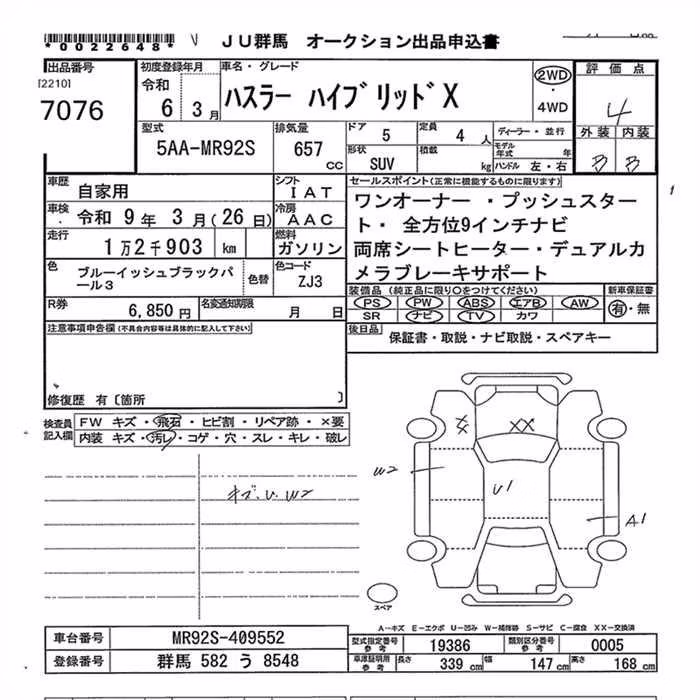 *0022648* V JU群馬 オークション出品申込書
出品番号 初度登録年月 車名・グレード 2WD 評価点
[2210] 令和 ハスラー ハイブリッドX ・ 4
7076 6 3月 4WD
型式 排気量 ドア 5 定員 4 人 ディーラー・並行 外装 内装
5AA-MR92S 657 cc 形状 SUV 積載 kg モデル年式 年 B B
ハンドル 左・右
車歴 自家用 シフト IAT セールスポイント(正常に機能するものに限ります)
車検 令和 9年 3月(26日) 冷房 AAC ワンオーナー ・プッシュスター
走行 1万2千903 km 燃料 ガソリン ト・ 全方位9インチナビ
色 ブルーイッシュブラックパール3 色替 色コード ZJ3 両席シートヒーター・デュアルカ
メラブレーキサポート
R券 6,850円 名変通知期限 月 日 装備品 (純正品に限り○をつけてください) 新車保証書
PS PW ABS エアB AW 有・無
SR ナビ TV カワ
注意事項申告欄(不具合内容等は具体的に記入して下さい) 後日品 保証書・取説・ナビ取説・スペアキー
修復歴 有〔箇所 〕
検査員記入欄 FW キズ・飛石・ヒビ割・リペア跡・×要
内装 キズ・汚レ・コゲ・穴・スレ・キレ・破レ
キズ.U.W2
XX
W2
U1
A1
スペア
A-キズ E-エクボ U-凹み W-補修跡 S-サビ C-腐食 XX-交換済
車台番号 MR92S-409552 型式指定番号 参考 19386 類別区分番号 参考 0005
登録番号 群馬 582 う 8548 車庫証明用 参考 長さ 339 cm 幅 147 cm 高さ 168 cm